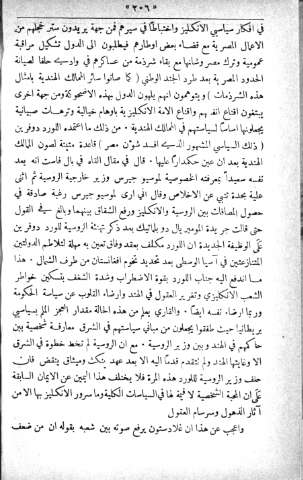 ﴿ ٢٠٦ ﴾
في افكار سياسي الانكليز واختباطاً في سيرهم فمن جهة يريدون ستر عجلهم من
الاعمال المصرية مع قضاء بعض اوطارهم فيطلبون الى الدول تشكيل مراقبة
عمومية وترك مصر وشانها مع بقاء شرذمة من عساكرهم في وادي حلفا لصيانة
الحدود المصرية بعد طرد الجند الوطني (كما صانوا سائر الممالك الهندية بامثال
هذه الشرذمات) ويتوهمون انهم يلهون الدول بهذه الاضحوكة ومن جهة اخرى
يبتغون اقناع انفسهم واقناع الامة الانكليزية باوهام خيالية وترهات صبيانية
يجعلونها اساساً لسياستهم في الممالك الهندية من ذلك ما اعتقد اللورد دوفرين
(ذلك السياسي المشهور الذي افسد شؤن مصر) قاعدة متينة لصون الممالك
الهندية بعد ان عين حكمداراً عليها. قال في مقال القاه في بال فاست انه يعد
نفسه سعيداً بمعرفته الخصوصية لموسيو جيرس وزير خارجية الروسية ثم اثنى
عليه بحدة تنبئ عن الاخلاص وقال اني ارى لموسيو جيرس رغبة صادقة في
حصول المصافات بين الروسية والانكليز ورفع الشقاق بينهما وبالغ في القول
حتى قالت جريدة المومريال دو بلماتيك بعد ذكر تهنئة الروسية للورد دوفرين
على الوظيفة الجديدة ان اللورد مكلف بعقد وفاق تعين به مهلة لتلاطم الدولتين
المتنازعتين في آسيا الوسطى بعد تحديد تخوم افغانستان من طرف الشمال.
ما اندفع اليه جناب اللورد بقوة الاضطراب وشدة الشغف بتسكين خواطر
الشعب الانكليزي وتغرير العقول في الهند وارضاء القلوب عن سياسة الحكومة
وربما ارضاء نفسه ايضاً. والقاري يعلم من هذه الحالة مقدار العجز الملم بسياسي
بريطانيا حيث طفقوا يجعلون من مباني سياستهم في الشرق معارفة شخصية بين
حاكمهم في الهند وبين وزير الروسية. مع ان الروسية لم تخط خطوة في الشرق
الا وغايتها الهند ولم تتقدم قدماً اليه الا بعد عهد ينكث وميثاق ينتقض فان
حنف وزير الروسية للورد هذه المرة فلا يختلف هذا اليمين عن الايمان السابقة
على ان المحبة الشخصية لا قيمة لها في السياسات الكلية وما سرور الانكليز بها الا من
آثار الذهول وسرسام العقول
واعجب من هذا ان غلادستون يرفع صوته بين شعبه بقوله ان من ضعف